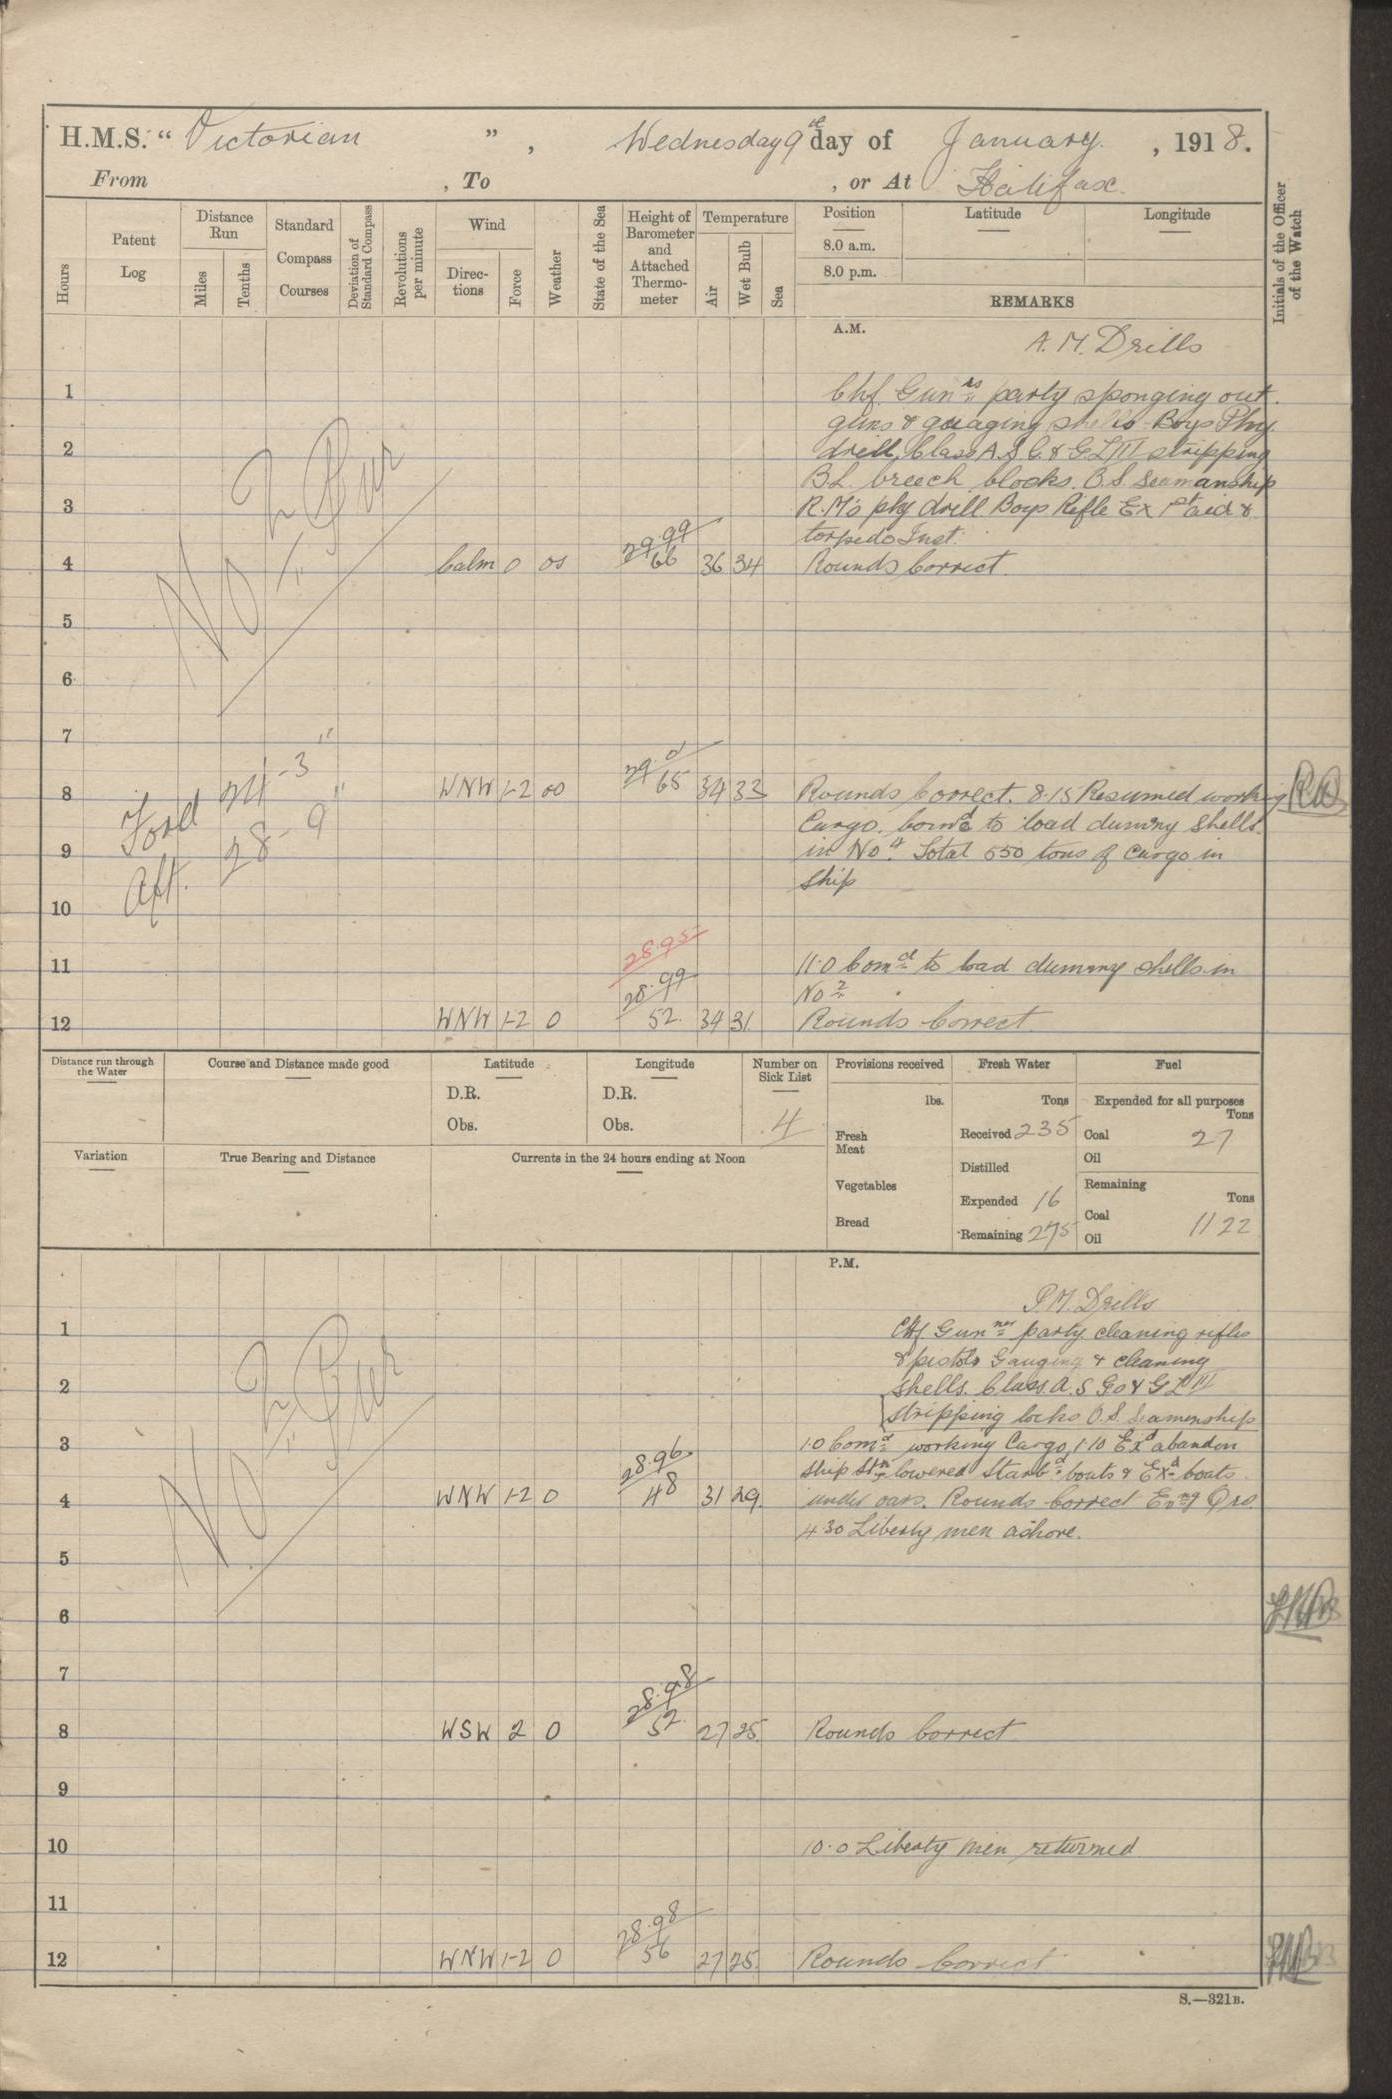 H.M.S. "Victorian", Wednesday 9th day of January, 1918.
From , To , or At Halifax.
Hours
Patent Log
Distance Run
Miles
Tenths
Standard Compass Courses
Deviation of Standard Compass
Revolutions per minute
Wind
Direc-tions
Force
Weather
State of the Sea
Height of Barometer and Attached Thermo-meter
Temperature
Air
Wet Bulb
Sea
Position
Latitude
Longitude
8.0 a.m.
8.0 p.m.
REMARKS
Initials of the Officer of the Watch
A.M.
A.M. Drills
1
Chf. Gunrs party sponging out
guns & guaging shells Boys Phy.
2
drill, Class A.S.G. & GLIII stripping
B.L. breech blocks. O.S. Seamanship
3
R.M's phy drill Boys Rifle Ex 1st aid &
torpedo Inst.
No 2 Cur
4 Calm 0 os 29.99 66 36 34 Rounds Correct.
5
6
7
8 WNW 1-2 oo 29.01 65 34 33 Rounds Correct. 8.15 Resumed working
Ford 24-3"
Cargo. Comcd to load dummy shells
9
in No 4. Total 550 tons of Cargo in
Aft. 28-9"
ship
10
28.95
11 11.0 Comd to load dummy shells in
No 2
12 WNW 1-2 0 28.99 52 34 31 Rounds Correct
Distance run through the Water
Course and Distance made good
Latitude
D.R.
Obs.
Longitude
D.R.
Obs.
Number on Sick List
4
Provisions received
lbs.
Fresh Meat
Vegetables
Bread
Fresh Water
Tons
Received 235
Distilled
Expended 16
Remaining 275
Fuel
Expended for all purposes
Tons
Coal 27
Oil
Remaining
Tons
Coal 1122
Oil
Variation
True Bearing and Distance
Currents in the 24 hours ending at Noon
P.M.
P.M. Drills
1
Chf Gunner party cleaning rifles
& pistols Gauging & cleaning
2
shells. Class A.S Go & GLIII
stripping locks O.S. Seamenship
No 2 Cur
3
1.0 Comd working Cargo, 1.10 Exd abandon
ship Stn lowered Starbd boats & Exd boats
4 WNW 1-2 0 28.96 48 31 29 under oars. Rounds Correct Evng Qrs.
4.30 Liberty men ashore.
5
6
7
8 WSW 2 0 28.98 52 27 25 Rounds Correct
9
10 10.0 Liberty men returned
11
12 WNW 1-2 0 28.98 56 27 25 Rounds Correct
S.—321B.